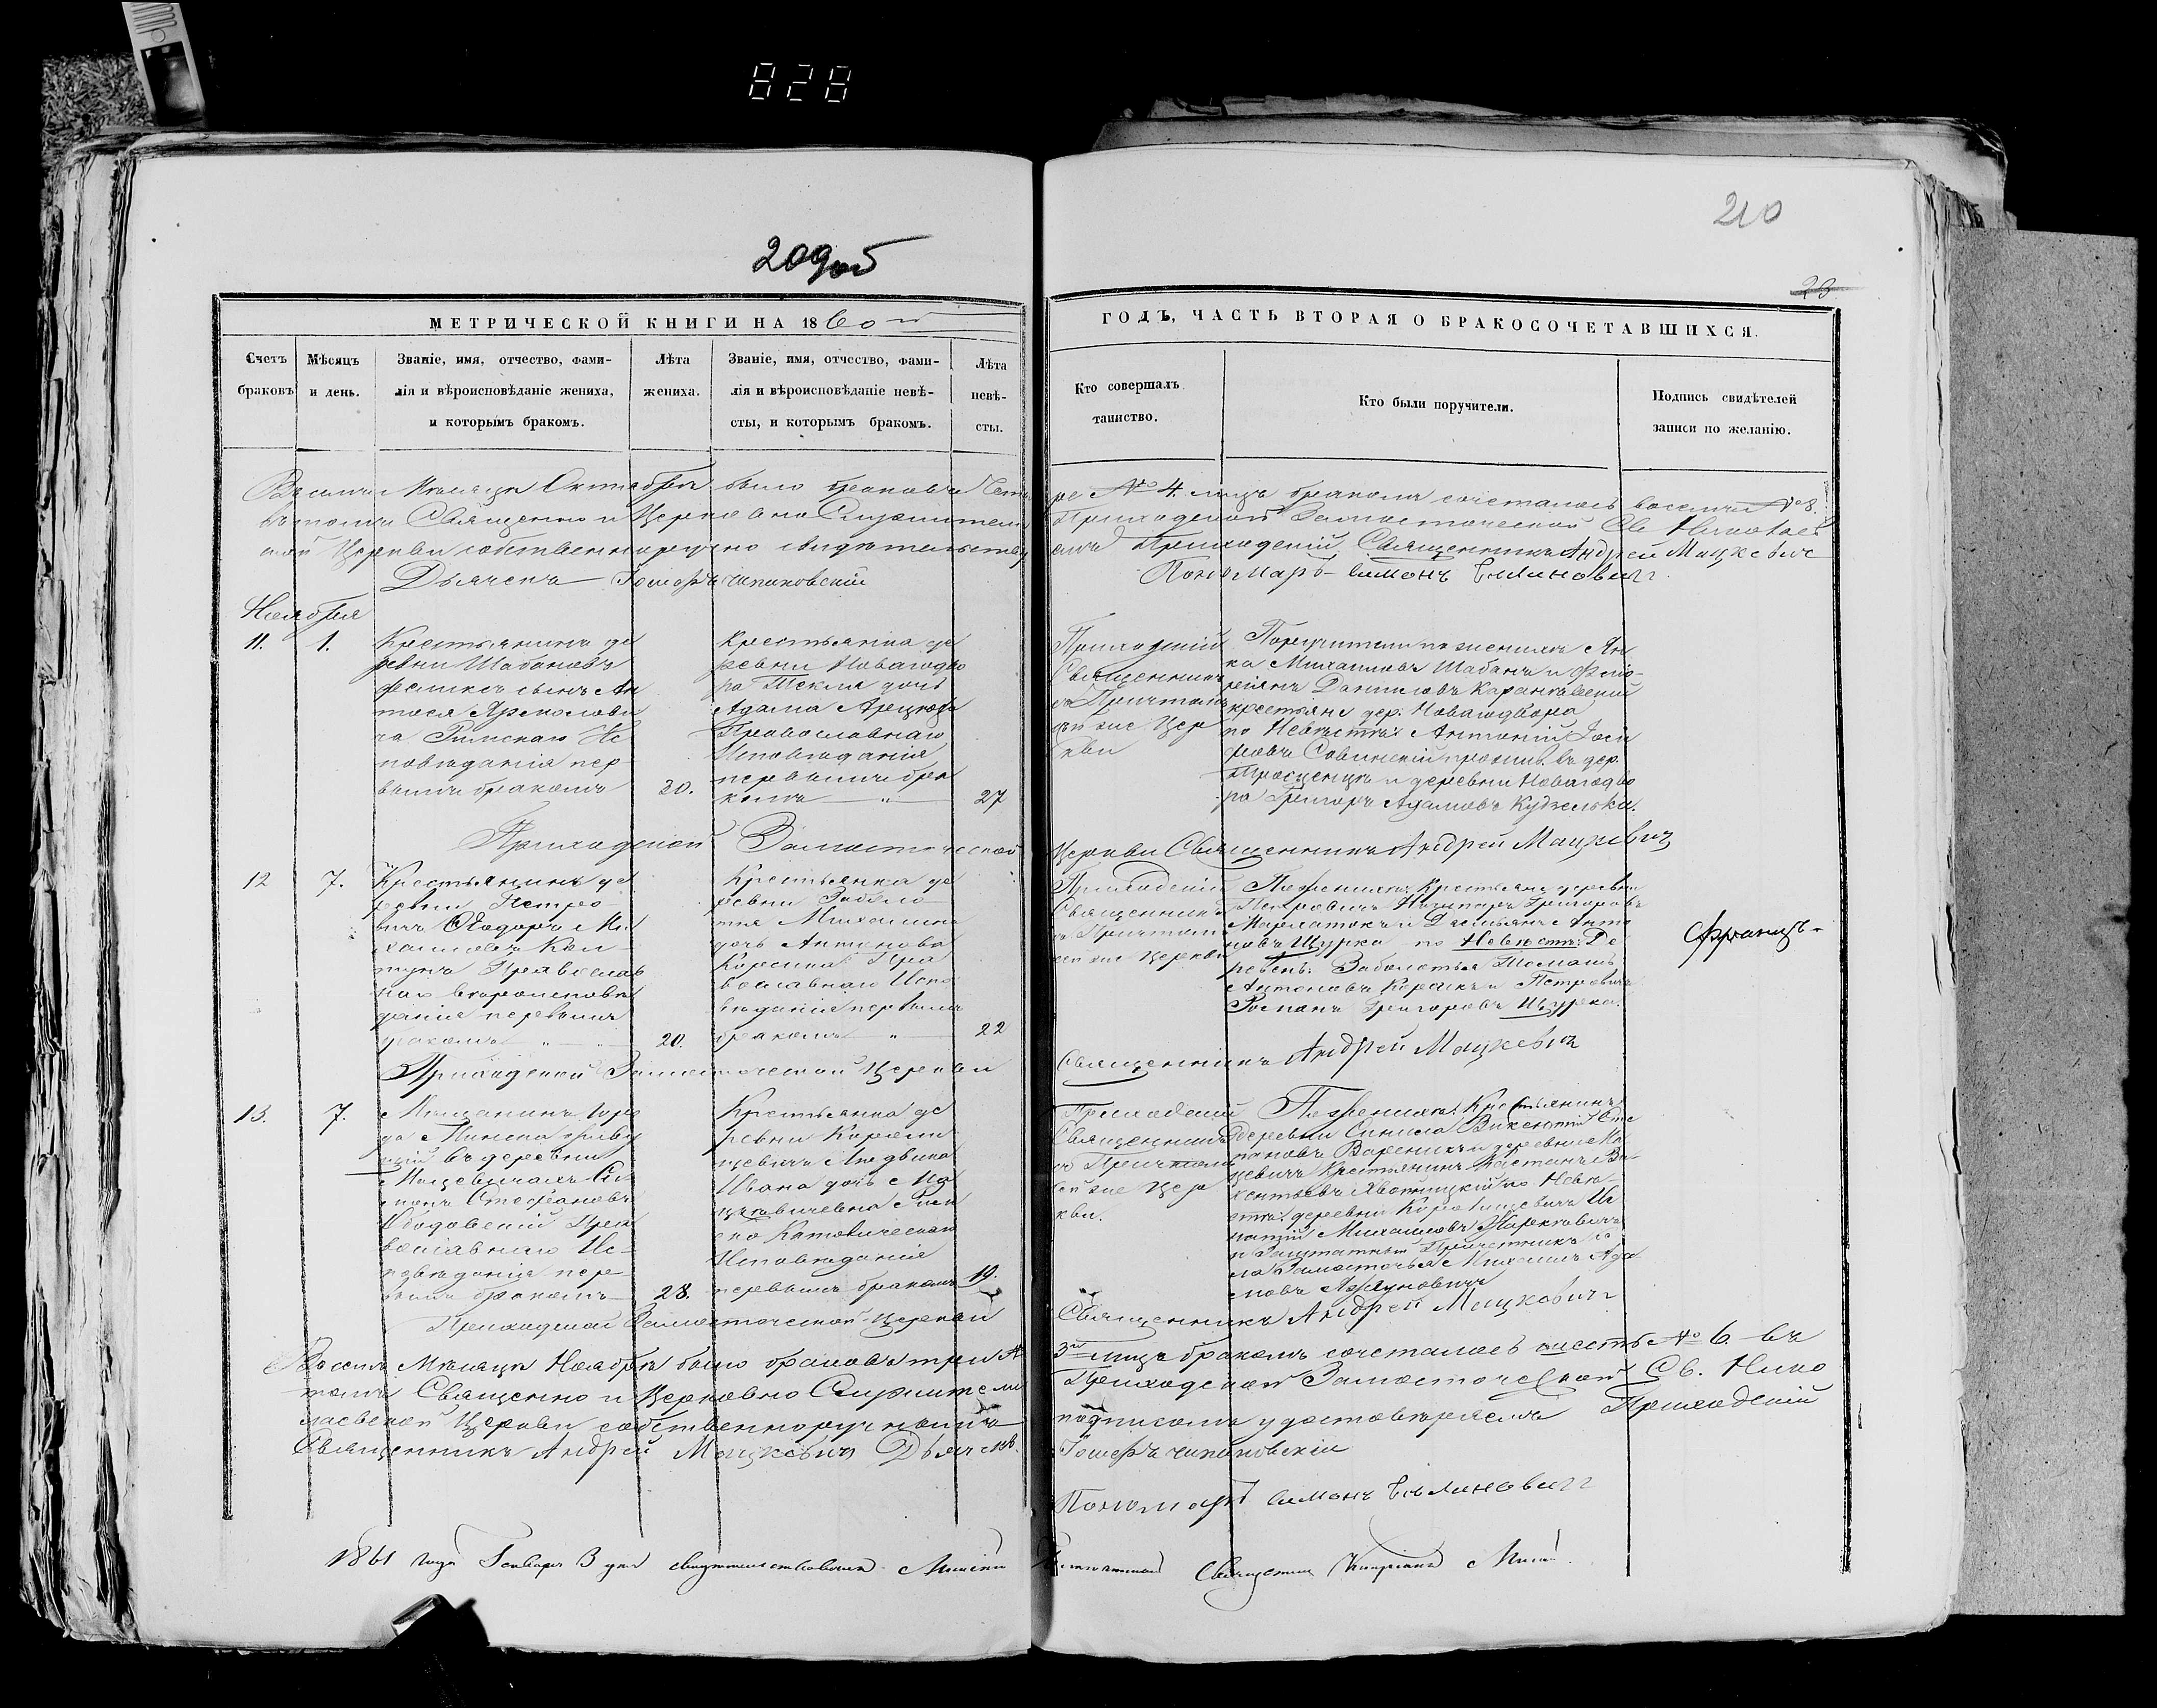 828
209 об
210
23
МЕТРИЧЕСКОЙ КНИГИ НА 1860й
ГОДЪ, ЧАСТЬ ВТОРАЯ О БРАКОСОЧЕТАВШИХСЯ.
Счетъ браковъ
Мѣсяцъ и день.
Званіе, имя, отчество, фами-
лія и вѣроисповѣданіе жениха,
и которымъ бракомъ.
Лѣта жениха.
Званіе, имя, отчество, фами-
лія и вѣроисповѣданіе невѣ-
сты, и которымъ бракомъ.
Лѣта невѣ-
сты.
Кто совершалъ
таинство.
Кто были поручители.
Подпись свидѣтелей
записи по желанію.
Мѣсяцѣ Октябрѣ было браковъ Четы
ре № 4. лицъ бракомъ сочеталось восемь № 8.
Священно и Церковно Служители
Приходской Замосточеской Св Николаев
ской Церкви собственноручно свидѣтельству
емъ Приходскій Священникъ Андрей Мацкевичъ
Дьячекъ
Пономарь Симонъ
Ноября
11.
1.
Крестьянинъ де
ревни Шабановъ
Феликсъ сынъ Ан
Римскаго Ис
повѣданія пер
вымъ бракомъ
30.
Крестьянка де
ревни Новагодво
ра Текля дочь
Адама
Православнаго
Исповѣданія
первымъ бра
комъ
27
Приходскій
Священникъ
съ Причтомъ
той же Цер
кви
Поручители по женихѣ Ян
ка Михаиловъ Шабанъ и Фло
ріянъ Даниловъ
крестьяне дер. Новагодвора
по Невѣстѣ Антоній Іоси
фовъ Савинскій въ дер.
и деревни Новагодво
ра Григоръ Адамовъ Кудзелька.
Приходской Замосточеской
Церкви Священникъ Андрей Мацкевичъ
12
7.
Крестьянинъ де
ревни Петро
вичъ Ѳеодоръ Ми
хаиловъ
Православ
наго Вѣроисповѣ
данія первымъ
бракомъ
20.
Крестьянка де
ревни Заболо
тья
дочь Антонова
Пра
вославнаго Испо
вѣданія первымъ
бракомъ
22
Приходскій
Священникъ
съ Причтомъ
той же Церкви
По женихѣ Крестьяне деревни
Петровичъ Григоровъ
и Дамьянъ Анто
новъ Щурка по Невѣстѣ: Де
ревень: Заболотья Томашъ
Антоновъ и Петровичъ
Романъ Григоровъ Щурка.
Францъ
Приходской Замосточеской Церкви
Священникъ Андрей Мацкевичъ
13.
7.
Мѣщанинъ горо
да Минска живу
щій въ деревни
Мацевичахъ Си
монъ Стефановъ
Ободовскій Пра
вославнаго Ис
повѣданія пер
вымъ бракомъ
28.
Крестьянка де
ревни Короли
щевичъ Людвика
Ивана дочь Ма
Рим
ско Католическаго
Исповѣданія
первымъ бракомъ
19.
Приходскій
Священникъ
съ Причтомъ
той же Цер
кви.
По женихѣ: Крестьянинъ
деревни Синило Викентій Сте
пановъ Вареникъ и деревни Ма
цевичъ Крестьянинъ
по Невѣ
стѣ: деревни Королищевичъ Иг
натій Михаиловъ
и Заштатный Причетникъ се
ла Замосточья Михаилъ Ада
мовъ
Приходской Замосточеской Церкви
Священникъ Андрей Мацкевичъ
Мѣсяцѣ Ноябрѣ было браковъ три №
3й лицъ бракомъ сочеталось шесть № 6. въ
томъ Священно и Церковно Служители
Приходской Замосточеской Св. Нико
лаевской Церкви собственноручнымъ
подписомъ удостовѣряемъ Приходскій
Священникъ Андрей Мацкевичъ Дьячекъ
Пономарь Симонъ
1861 года Генваря 3 дня свидѣтельствовалъ Минскій
Священникъ